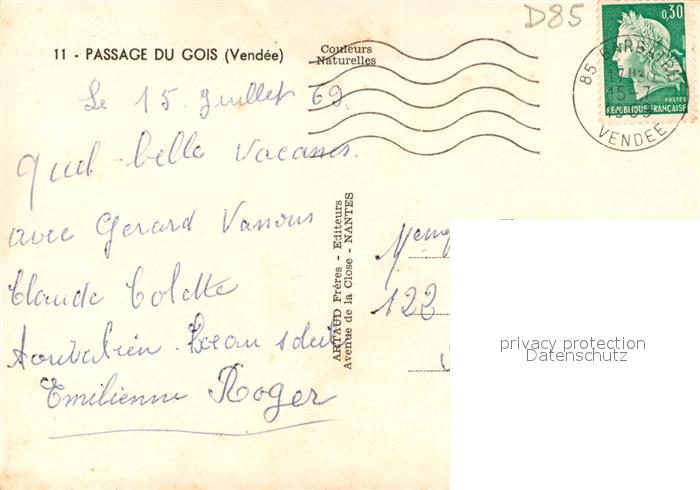 D85
11 - PASSAGE DU GOIS (Vendée)
Couleurs
Naturelles
0,30
POSTES
REPUBLIQUE FRANÇAISE
85 BARBATRE
15-7
VENDEE
Le 15 Juillet 69.
Quel belle vacanses.
avec Gerard Vanous
Claude Colette
beau soleil
Emilienne Roger
ARTAUD Frères - Editeurs
Avenue de la Close - NANTES
122
privacy protection
Datenschutz